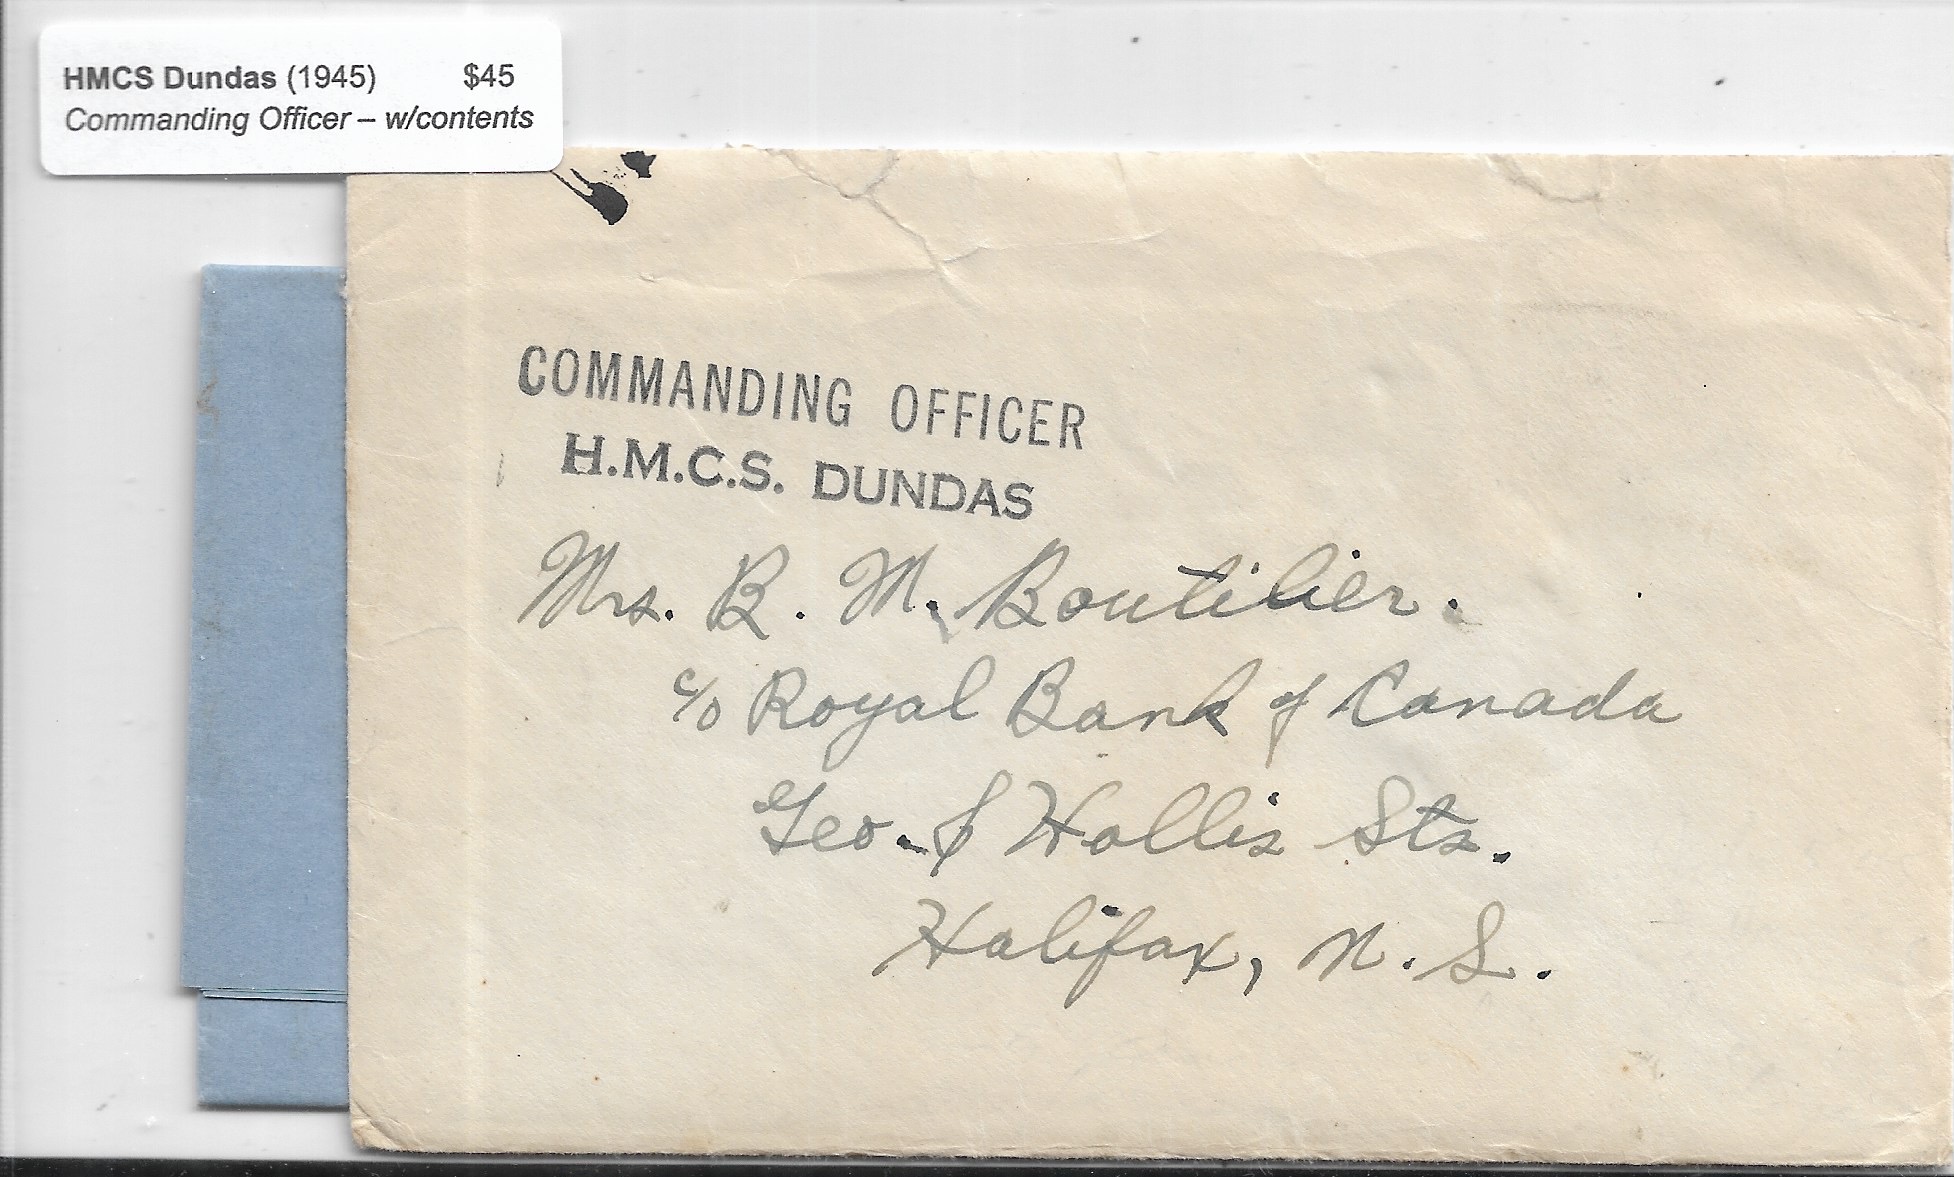 HMCS Dundas (1945) $45
Commanding Officer – w/contents
COMMANDING OFFICER
H.M.C.S. DUNDAS
Mrs. B. M. Boutilier.
c/o Royal Bank of Canada
Geo. & Hollis Sts.
Halifax, N. S.